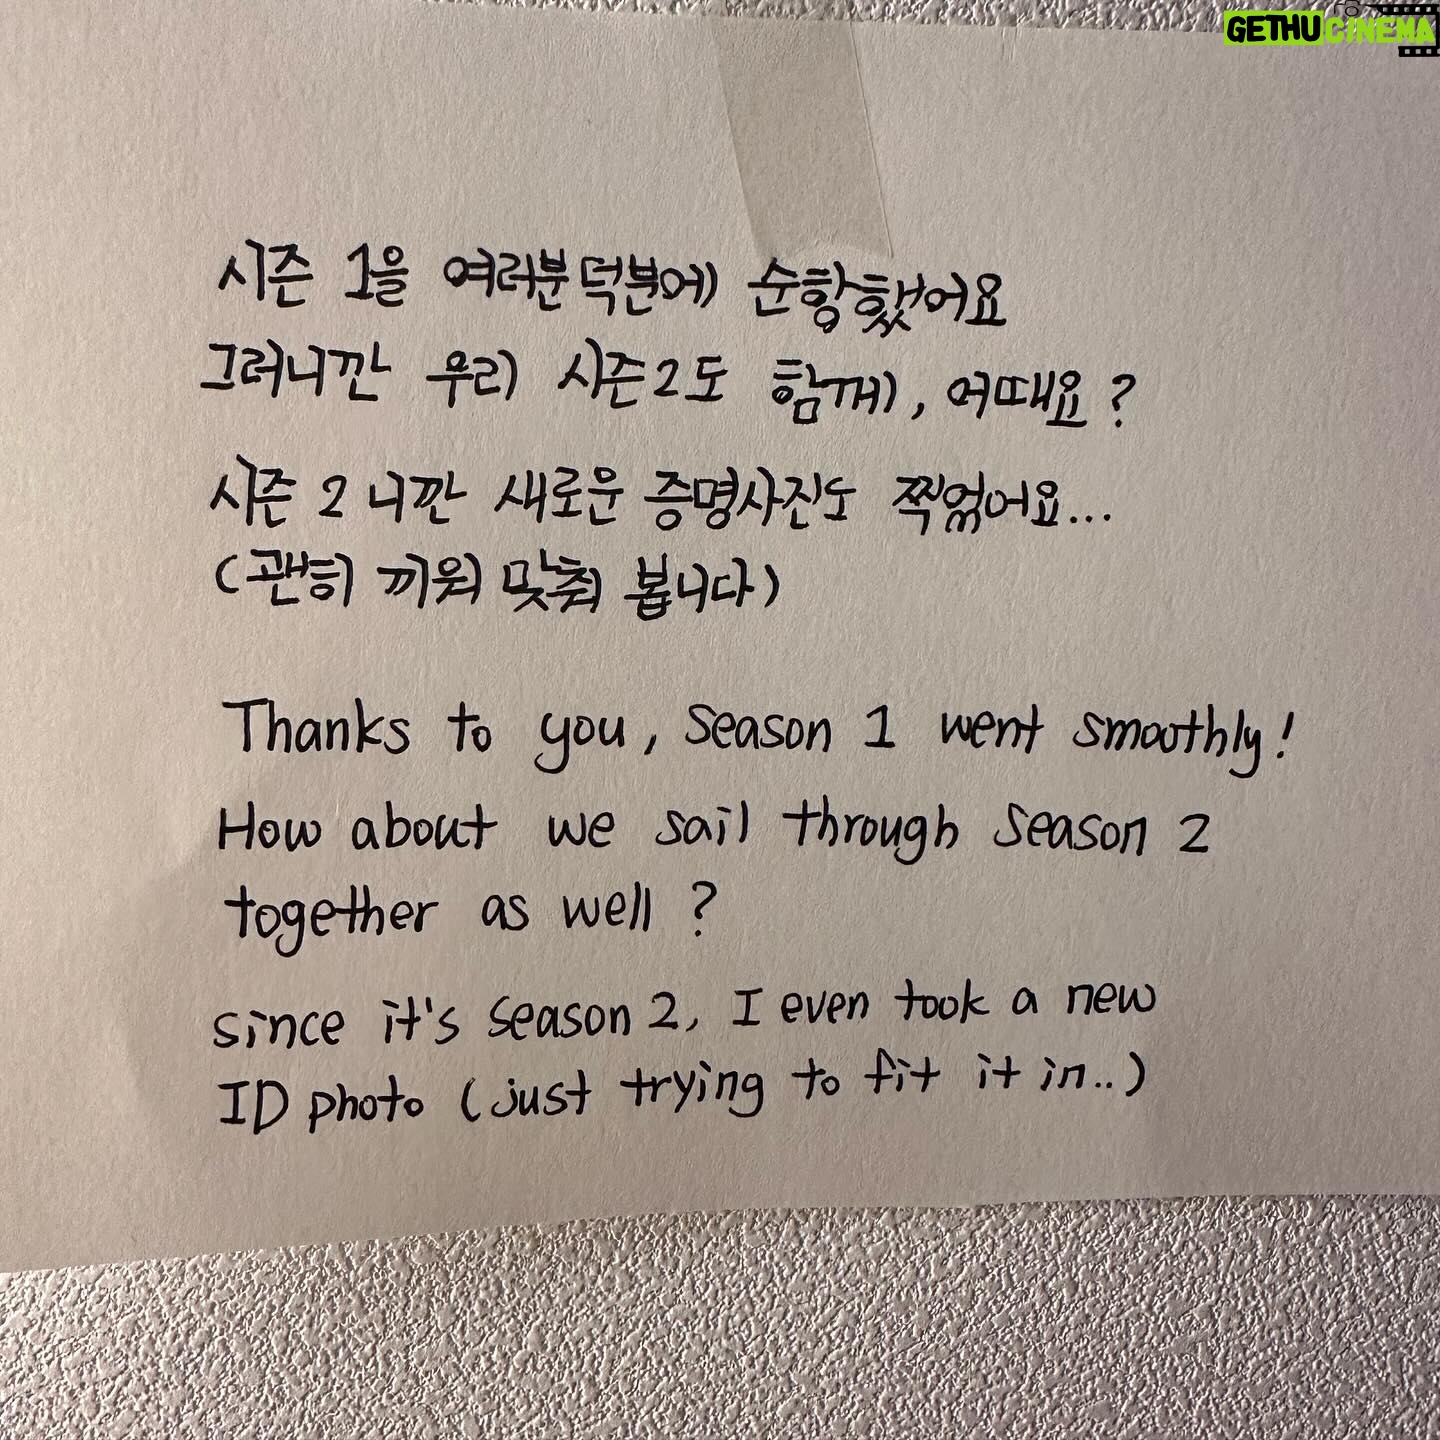 GETHUCINEMA
시즌 1을 여러분덕분에 순항했어요
그러니깐 우리 시즌2도 함께, 어때요?
시즌 2니깐 새로운 증명사진도 찍었어요...
(괜히 끼워 맞춰 봅니다)
Thanks to you, season 1 went smoothly!
How about we sail through season 2
together as well?
since it's season 2, I even took a new
ID photo (just trying to fit it in..)